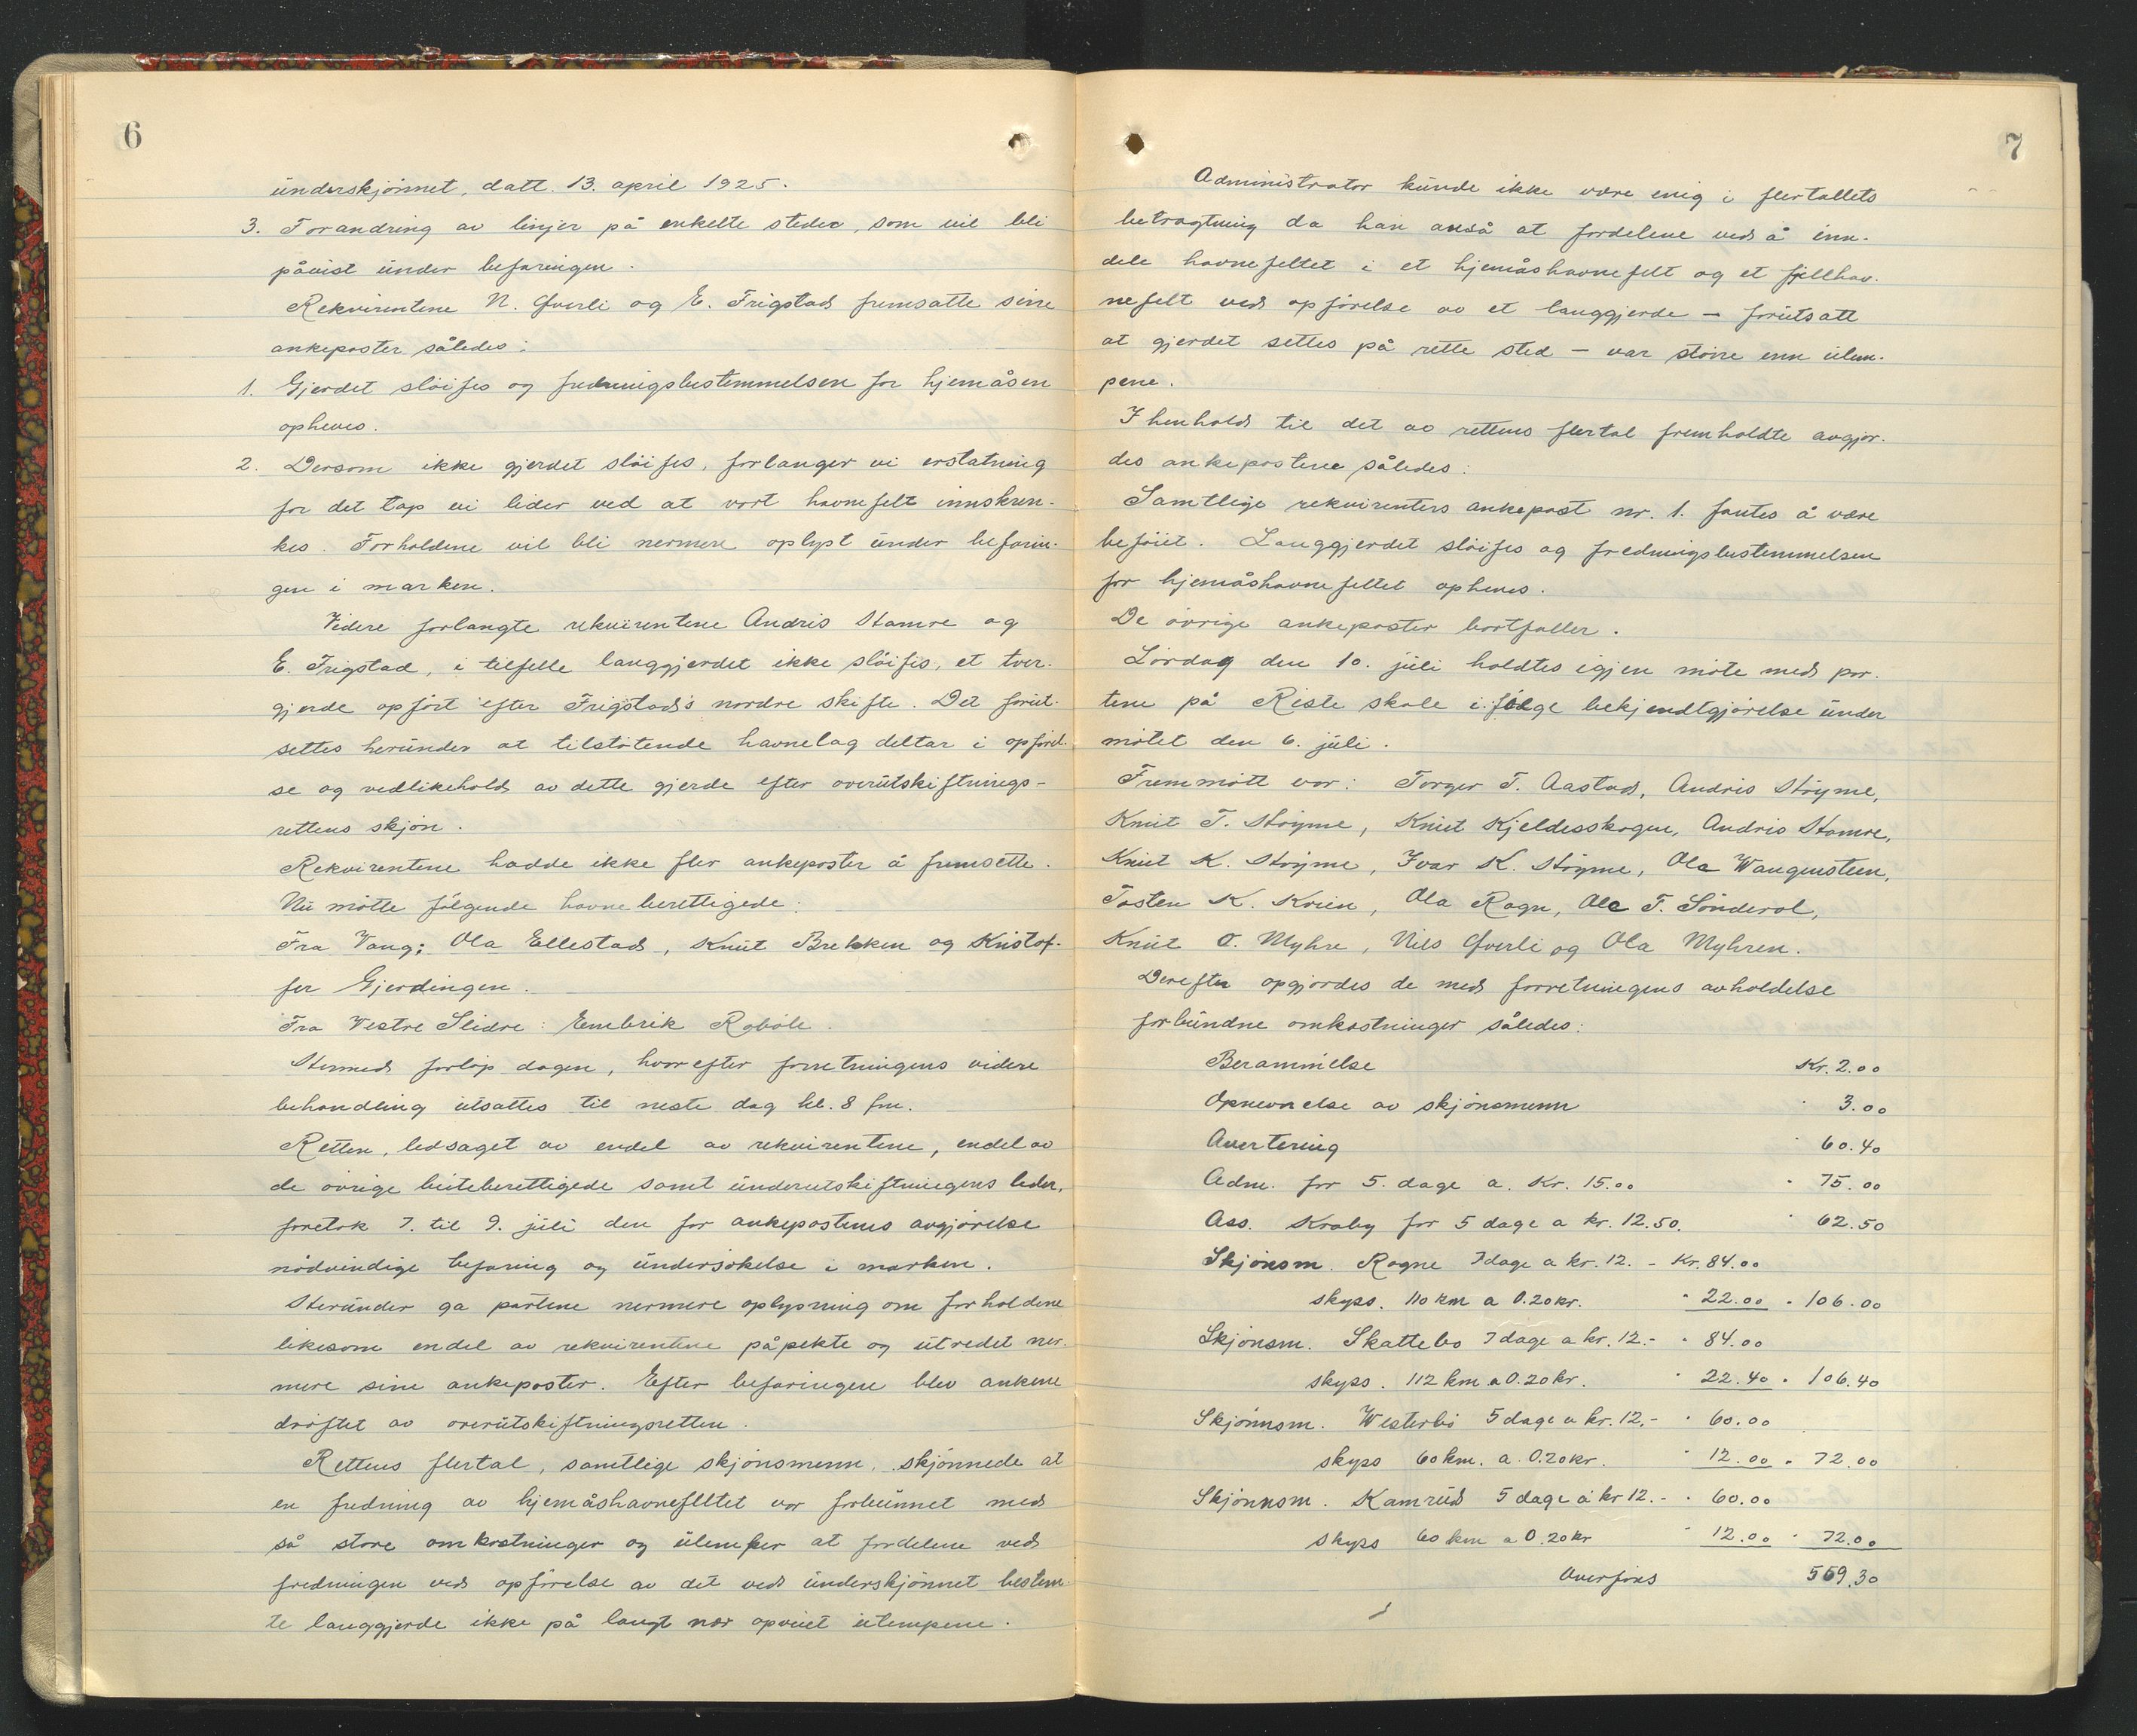 6
underskjönnet, datt. 13. april 1925.
3. Forandring av linjer på enkelte steder, som vil bli
påvist under befaringen.
Rekvirentene N. Qverli og E. Frigstad fremsatte sine
ankeposter således:
1. Gjerdet slöifes og fredningsbestemmelsen for hjemåsen
opheves.
2. Dersom ikke gjerdet slöifes, forlanger vi erstatning
for det tap vi lider ved at vort havnefelt innskren-
kes. Forholdene vil bli nermere oplyst under befarin-
gen i marken.
Videre forlangte rekvirentene Andris Stamre og
E. Frigstad, i tilfelle langgjerdet ikke slöifes, et tver-
gjerde opfört efter Frigstad's nordre skifte. Det forut-
settes herunder at tilstötende havnelag deltar i opförel-
se og vedlikehold av dette gjerde efter overutskiftnings-
rettens skjön.
Rekvirentene hadde ikke fler ankeposter å fremsette.
Nu mötte fölgende havneberettigede:
Fra Vang: Ola Ellestad, Knut Brekken og Kristof-
fer Gjerdingen.
Fra Vestre Slidre: Embrik Roböle.
Hermed forlöp dagen, hvorefter forretningens videre
behandling utsattes til neste dag kl. 8 fm.
Retten, ledsaget av endel av rekvirentene, endel av
de övrige beiteberettigede samt underutskiftningens leder,
foretok 7. til 9. juli den for ankepostenes avgjörelse
nödvendige befaring og undersökelse i marken.
Herunder ga partene nermere oplysning om forholdene
likesom endel av rekvirentene påpekte og utredet ner-
mere sine ankeposter. Efter befaringen blev ankene
dröftet av overutskiftningsretten.
Rettens flertal, samtlige skjönsmenn, skjönnede at
en fredning av hjemåshavnefeltet var forbunnet med
så store omkostninger og ulemper at fordelene ved
fredningen ved opförelse av det ved underskjönnet bestem-
te langgjerde ikke på langt nær opveiet ulempene.
7
Administrator kunde ikke være enig i flertallets
betragtning da han anså at fordelene ved å inn-
dele havnefeltet i et hjemåshavnefelt og et fjellhav-
nefelt ved opförelse av et langgjerde – forutsatt
at gjerdet settes på rette sted – var större enn ulem-
pene.
I henhold til det av rettens flertal fremholdte avgjör-
des ankepostene således:
Samtlige rekvirenters ankepost nr. 1. fantes å være
beföiet. Langgjerdet slöifes og fredningsbestemmelsen
for hjemåshavnefeltet opheves.
De övrige ankeposter bortfaller.
Lördag den 10. juli holdtes igjen möte med par-
tene på Riste skole ifölge bekjendtgjörelse under
mötet den 6. juli.
Fremmött var: Torger T. Aastad, Andris Stöyme,
Knut T. Stöyme, Knut Kjeldesskogen, Andris Stamre,
Knut K. Stöyme, Ivar K. Stöyme, Ola Wangensteen,
Tosten K. Kvien, Ola Rogn, Ole T. Sönderol,
Knut O. Myhre, Nils Qverli og Ola Myhren.
Derefter opgjordes de med forretningens avholdelse
forbundne omkostninger således:
Berammelse Kr. 2.00
Opnevnelse av skjönsmenn " 3.00
Avertering " 60.40
Adm. for 5. dage a. Kr. 15.00 " 75.00
Ass. Kraby for 5 dage a kr. 12.50. " 62.50
Skjönsm. Rogne 7 dage a kr. 12. - Kr. 84.00
skyss. 110 km a 0.20 kr. " 22.00 " 106.00
Skjönsm. Skattebo 7 dage a kr. 12.- " 84.00
skyss. 112 km a 0.20 kr. " 22.40 " 106.40
Skjönnsm. Westerbö 5 dage a kr. 12.- " 60.00
skyss 60 km. a 0.20 kr. " 12.00 " 72.00
Skjönnsm. Kamrud 5 dage a kr 12.- " 60.00
skyss 60 km a 0.20 kr " 12.00 " 72.00
Overföres 559.30